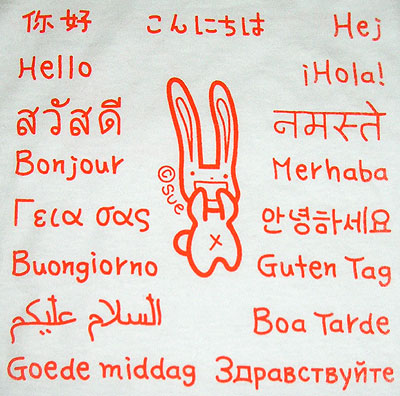 你好 こんにちは Hej
Hello ¡Hola!
สวัสดี नमस्ते
Bonjour Merhaba
©Sue
Γεια σας 안녕하세요
Buongiorno Guten Tag
السلام عليكم Boa Tarde
Goede middag Здравствуйте